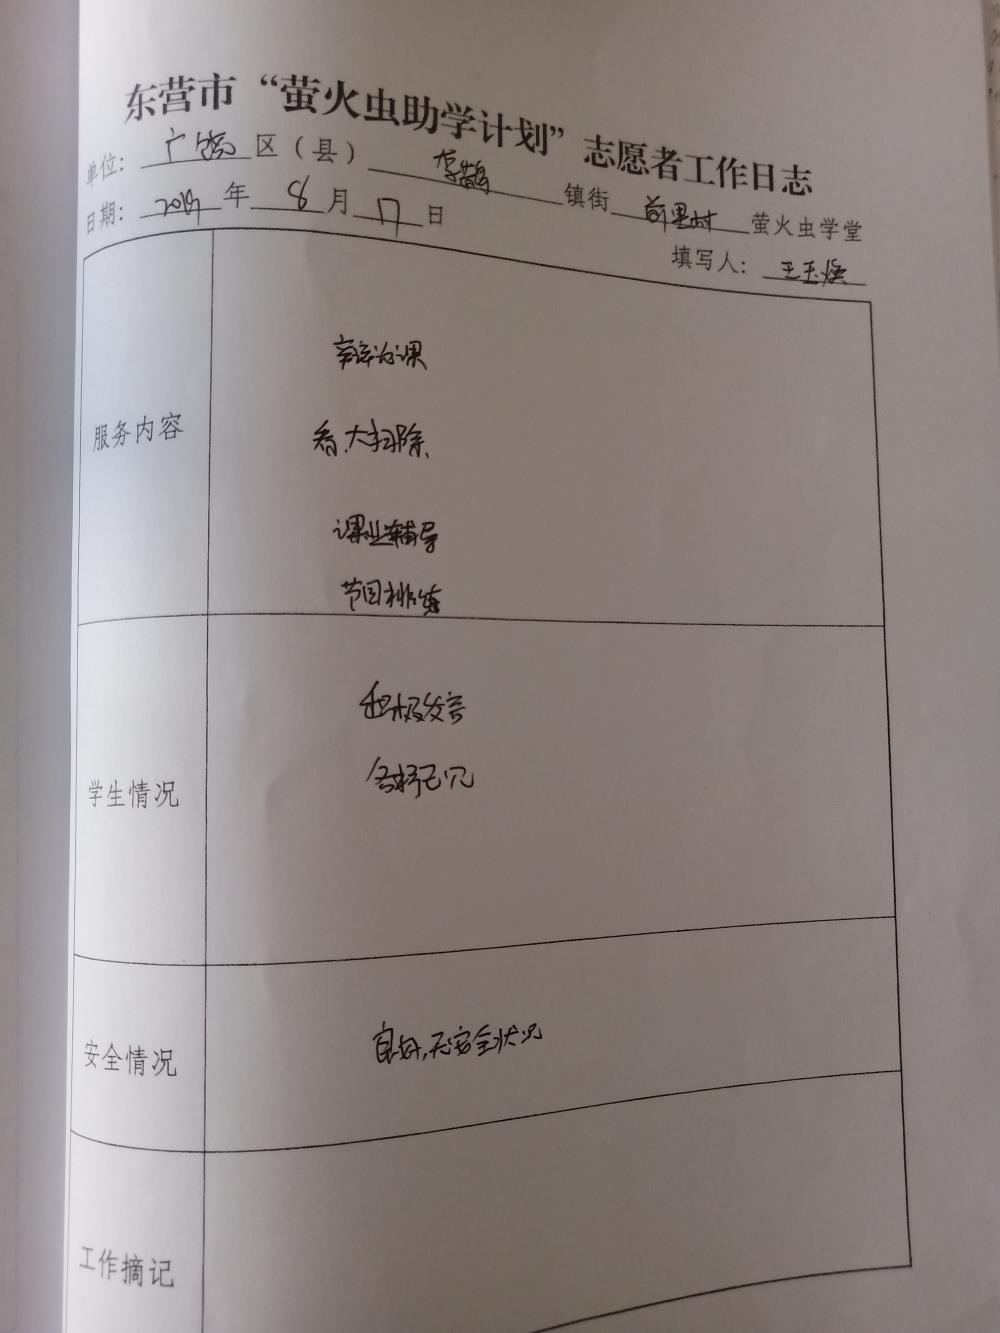 东营市“萤火虫助学计划”志愿者工作日志
单位：广饶区（县）李鹊镇街前里村萤火虫学堂
日期：2019年8月17日
填写人：王玉焕
服务内容
辩论课
大扫除
课业辅导
节目排练
学生情况
积极发言
各抒己见
安全情况
良好，无安全状况
工作摘记